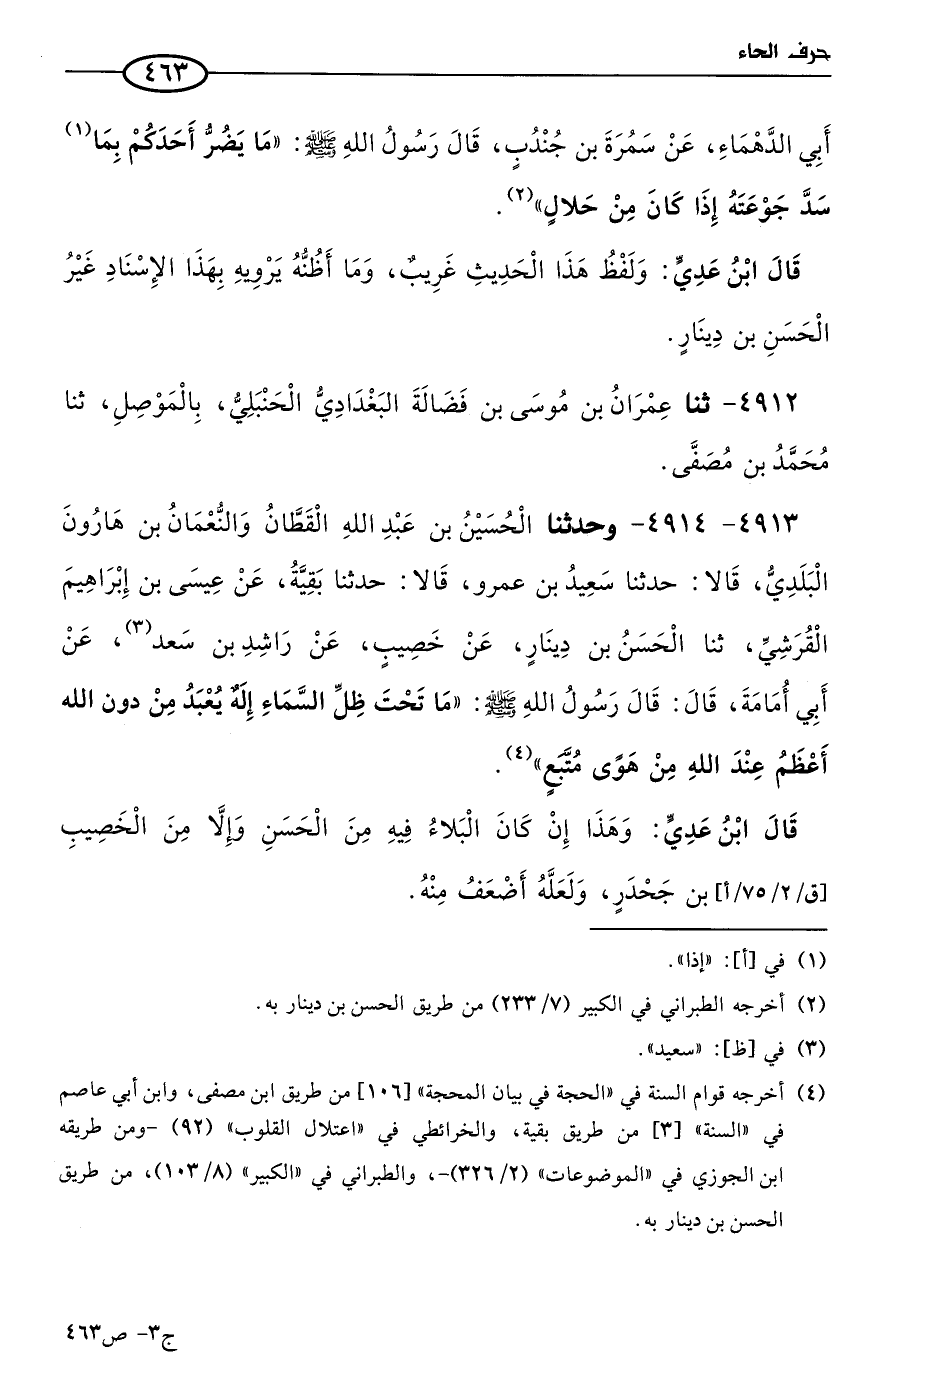 حرف الحاء
٤٦٣
أَبِي الدَّهْمَاءِ، عَنْ سَمُرَةَ بن جُنْدُبٍ، قَالَ رَسُولُ اللهِ ﷺ: «مَا يَضُرُّ أَحَدَكُمْ بِمَا(١)
سَدَّ جَوْعَتَهُ إِذَا كَانَ مِنْ حَلالٍ»(٢).
قَالَ ابْنُ عَدِيٍّ: وَلَفْظُ هَذَا الْحَدِيثِ غَرِيبٌ، وَمَا أَظُنُّهُ يَرْوِيهِ بِهَذَا الإِسْنَادِ غَيْرُ
الْحَسَنِ بن دِينَارٍ.
٤٩١٢- ثنا عِمْرَانُ بن مُوسَى بن فَضَالَةَ البَغْدَادِيُّ الْحَنْبَلِيُّ، بِالْمَوْصِلِ، ثنا
مُحَمَّدُ بن مُصَفَّى.
٤٩١٣- ٤٩١٤- وحدثنا الْحُسَيْنُ بن عَبْدِ اللهِ الْقَطَّانُ وَالنُّعْمَانُ بن هَارُونَ
الْبَلَدِيُّ، قَالا: حدثنا سَعِيدُ بن عمرو، قَالا: حدثنا بَقِيَّةُ، عَنْ عِيسَى بن إِبْرَاهِيمَ
الْقُرَشِيِّ، ثنا الْحَسَنُ بن دِينَارٍ، عَنْ خَصِيبٍ، عَنْ رَاشِدِ بن سَعد(٣)، عَنْ
أَبِي أُمَامَةَ، قَالَ: قَالَ رَسُولُ اللهِ ﷺ: «مَا تَحْتَ ظِلِّ السَّمَاءِ إِلَهٌ يُعْبَدُ مِنْ دون الله
أَعْظَمُ عِنْدَ اللهِ مِنْ هَوًى مُتَّبَعٍ»(٤).
قَالَ ابْنُ عَدِيٍّ: وَهَذَا إِنْ كَانَ الْبَلاءُ فِيهِ مِنَ الْحَسَنِ وَإِلَّا مِنَ الْخَصِيبِ
[ق/٢/٧٥/أ] بن جَحْدَرٍ، وَلَعَلَّهُ أَضْعَفُ مِنْهُ.
(١) في [أ]: «إذا».
(٢) أخرجه الطبراني في الكبير (٧/ ٢٣٣) من طريق الحسن بن دينار به.
(٣) في [ظ]: «سعيد».
(٤) أخرجه قوام السنة في «الحجة في بيان المحجة» [١٠٦] من طريق ابن مصفى، وابن أبي عاصم
في «السنة» [٣] من طريق بقية، والخرائطي في «اعتلال القلوب» (٩٢) -ومن طريقه
ابن الجوزي في «الموضوعات» (٢/ ٣٢٦)-، والطبراني في «الكبير» (٨/ ١٠٣)، من طريق
الحسن بن دينار به.
ج٣- ص٤٦٣